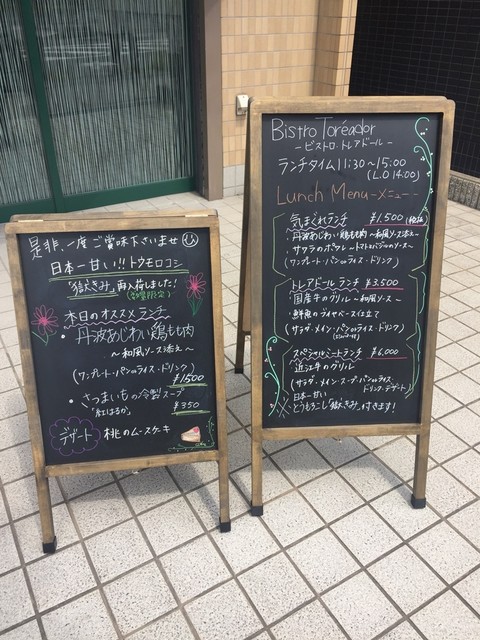 是非一度ご賞味下さいませ
日本一甘い!!! トウモロコシ
「嶽きみ」再入荷しました!
本日のオススメランチ
・丹波あじわい鶏もも肉
〜和風ソース添え〜
(ワンプレート・パンorライス・ドリンク)
¥1,500
・さつまいもの冷製スープ
「紅はるか」
¥350
デザート
桃のムースケーキ
Bistro Toréador
-ビストロ・トレアドール-
ランチタイム 11:30〜15:00
(L.O 14:00)
Lunch Menu -メニュー-
気まぐれランチ ¥1,500
・丹波あじわい鶏もも肉 〜和風ソース添え〜
(ワンプレート・パンorライス・ドリンク)
トレアドールランチ ¥3,500
・国産牛のグリル 〜和風ソース〜
(サラダ・メイン・パンorライス・ドリンク)
スペシャルミートランチ ¥6,000
近江牛のグリル
(サラダ・メイン・スープ・パンorライス
ドリンク・デザート)
日本一甘い
とうもろこし「嶽きみ」付きます!